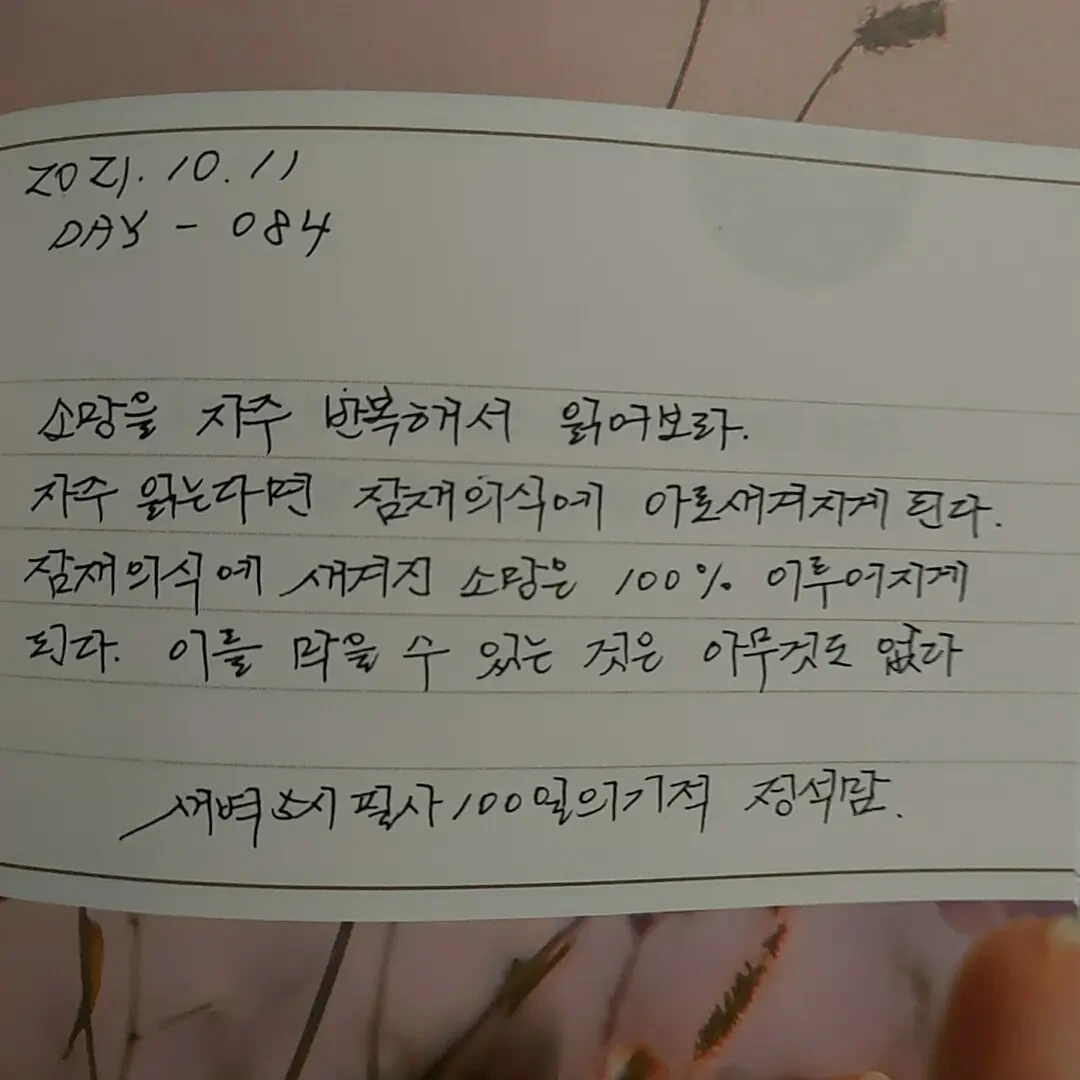 2021.10.11
DAY - 084
소망을 자주 반복해서 읽어보라.
자주 읽는다면 잠재의식에 아로새겨지게 된다.
잠재의식에 새겨진 소망은 100% 이루어지게
된다. 이를 막을 수 있는 것은 아무것도 없다
새벽 5시 필사 100일의기적 정석맘.